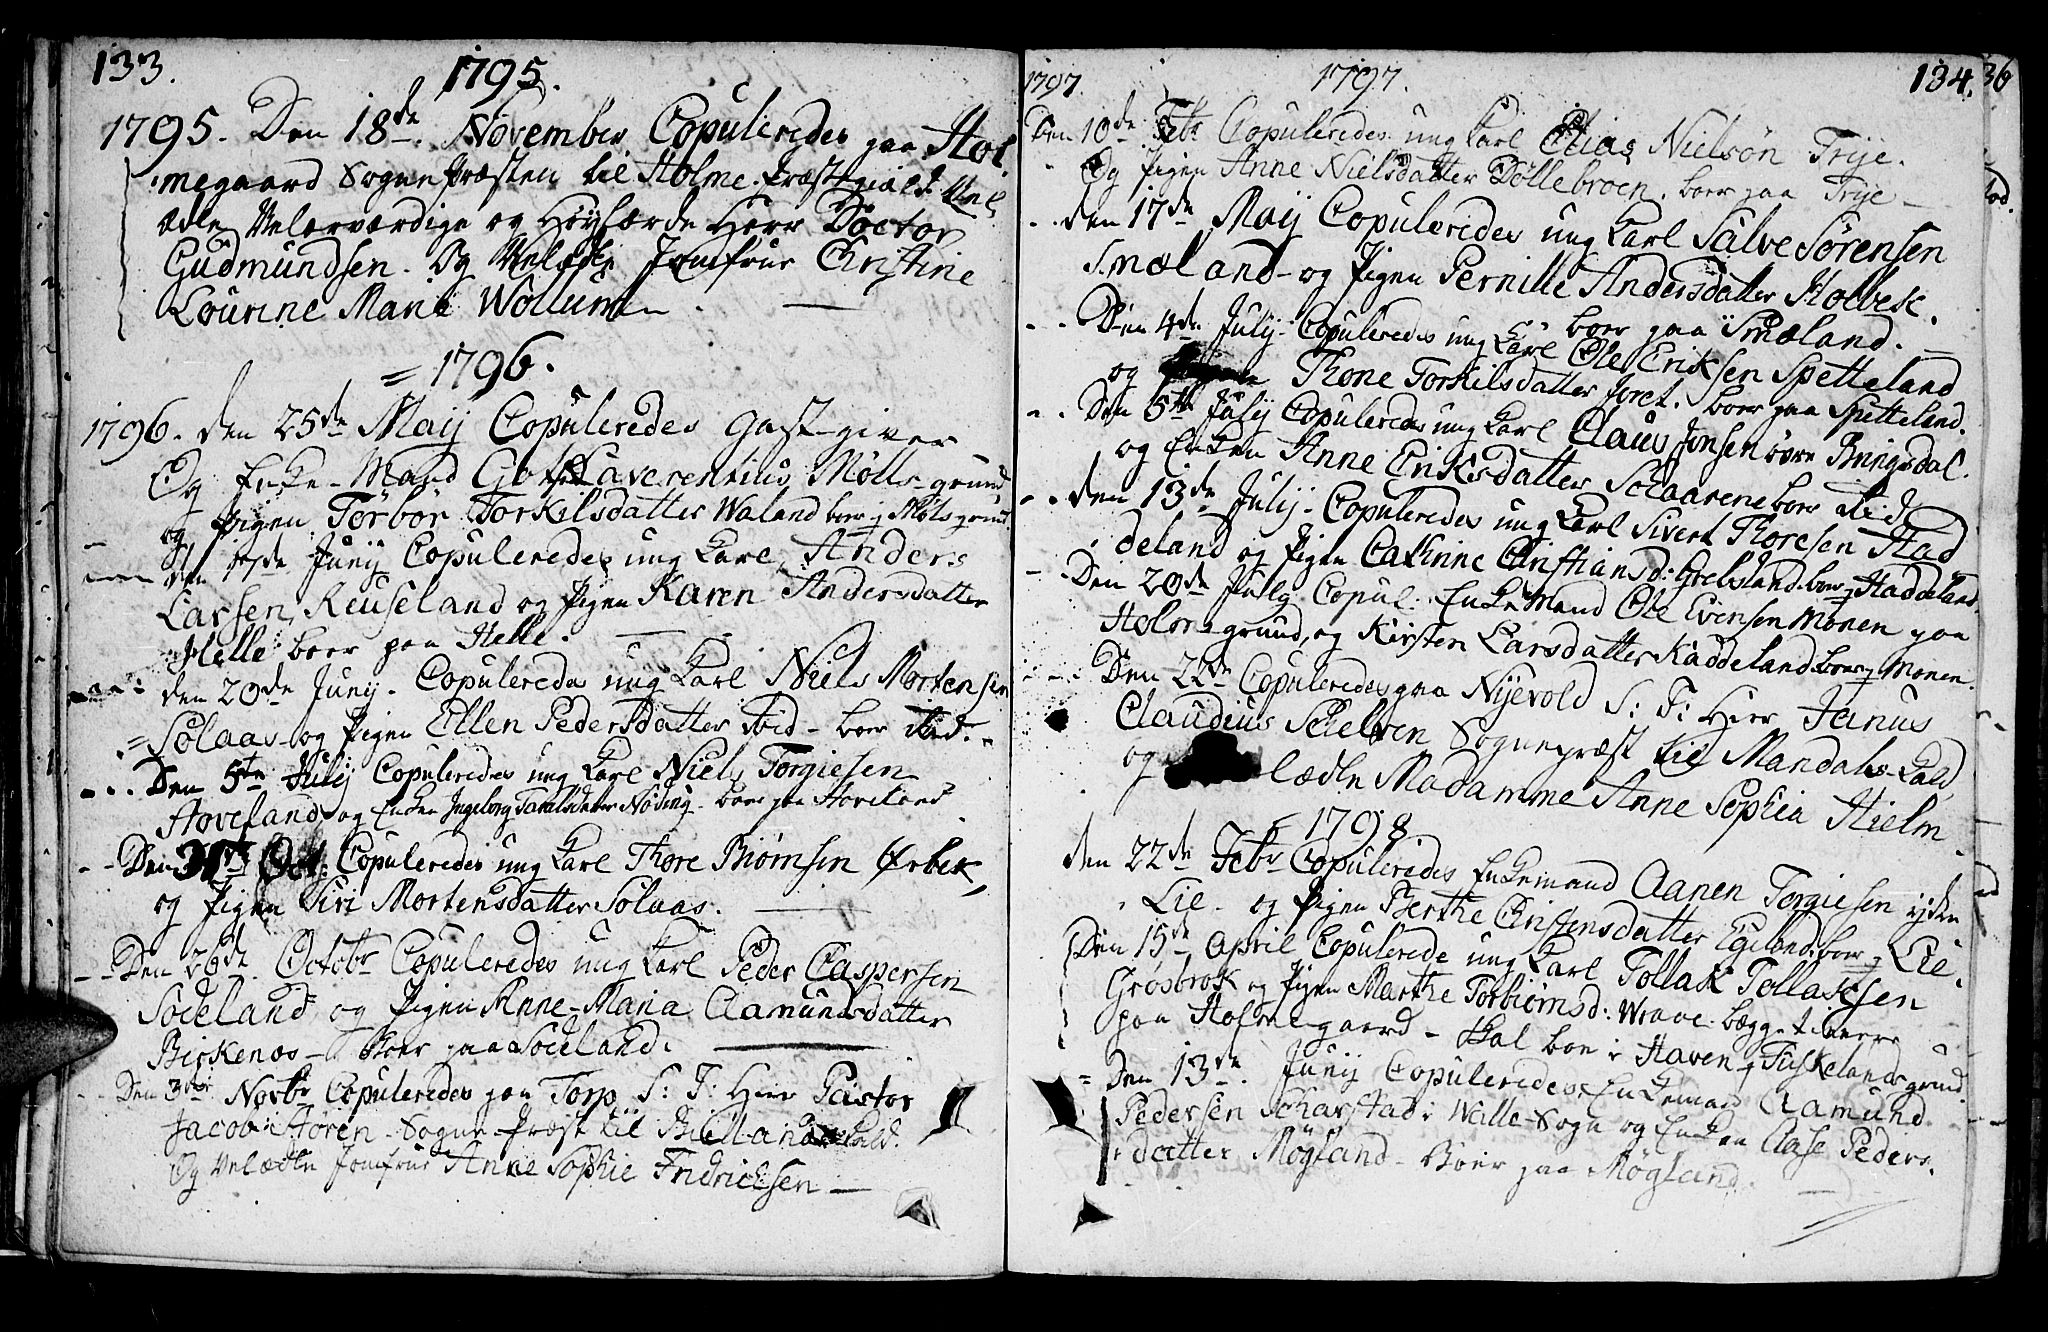 133.
1795.
1795. Den 18de November Copuleredes paa Hol
megaard Sogne Præsten til Holme-Præstegield Vel
ædle Velærværdige og Höylærde Herr Doctor
Gudmundsen. Og Velædle Jomfrue Christine
Lourine Marie Wollum
= 1796.
1796. den 25de Maij Copuleredes Gastgiver
Og Enke-Mand Laverentius Mølls-grund
og Pigen Törbör Torkilsdatter Waland boer Møls grund.
den 17de Junij Copuleredes ung Karl Anders
Larsen, Reuseland og Pigen Karen Andersdatter
Helle boer paa Helle.
den 20de Junij. Copuleredes ung Karl Niels Mortensen
Solaas og Pigen Ellen Pedersdatter ibid - boer ibid.
Den 5te Julij Copuleredes ung Karl Niels Torgiesen
Hoveland og Enken Ingeborg Nöding. boer paa Hoveland
Den Oct: Copuleredes ung Karl Thore Biørnsen Ørbek,
og Pigen Siri Mortensdatter Solaas.
Den 26de Octobr Copuleredes ung Karl Peder Caspersen
Sodeland og Pigen Anne-Maria Aamundsdatter
Birkenes - Boer paa Sodeland.
Den 3die Novbr Copuleredes paa Torp S: T: Herr Pastor
Jacob Hören - Sogne-Præst til Biellands Kald.
Og Velædle Jomfrue Anne Sophie Fridrichsen
1797.
1797.
134.
36
Den 10de Febr Copuleredes ung Karl Elias Nielsön Trije.
Og Pigen Anne Nielsdatter Döllebroen. boer paa Trije
den 17de Maij Copuleredes ung Karl Salve Sørensen
Smæland og Pigen Pernille Andersdatter Holbek.
boer paa Smæland.
Den 4de Julij Copuleredes ung Karl Ole Eriksen Spetteland
og Thone Torkilsdatter Foret. boer paa Spetteland.
Den 5te Julij Copuleredes ung Karl Claus Jonsen øvre Bringsdal.
og Enken Anne Eriksdatter Schaarene boer ibid
den 13de Julij Copuleredes ung Karl Sivert Thoresen Had
deland og Pigen Cathrine Christiansd: Grebsland. boer Haddeland.
Den 20de July Copul. Enkemand Ole Evensen Monen paa
Holm-grund, og Kirsten Larsdatter Kaddeland boer Monen.
Den 22de Copuleredes paa Nijevold S: T: Herr Janus
Claudius Schelven Sognepræst til Mandahls-Kald
og lædle Madamme Anne Sophia Hielm
1798
den 22de Febr Copuleredes Enkemand Aanen Torgiesen ijtre
Lie - og Pigen Berthe Christensdatter Egeland. boer Lie.
Den 15de April Copulerede ung Karl Tollak Tollaksen
Grosbrok og Pigen Marthe Torbiørnsd: Wrave. begge tienere
paa Holmegaard - skal boe i Haven Tuskelands grund.
Den 13de Junij Copuleredes Enkemand Aamund
Pedersen Scharstad i Walle-Sogn og Enken Aase Peders
datter Møgland - Boer paa Møgland.